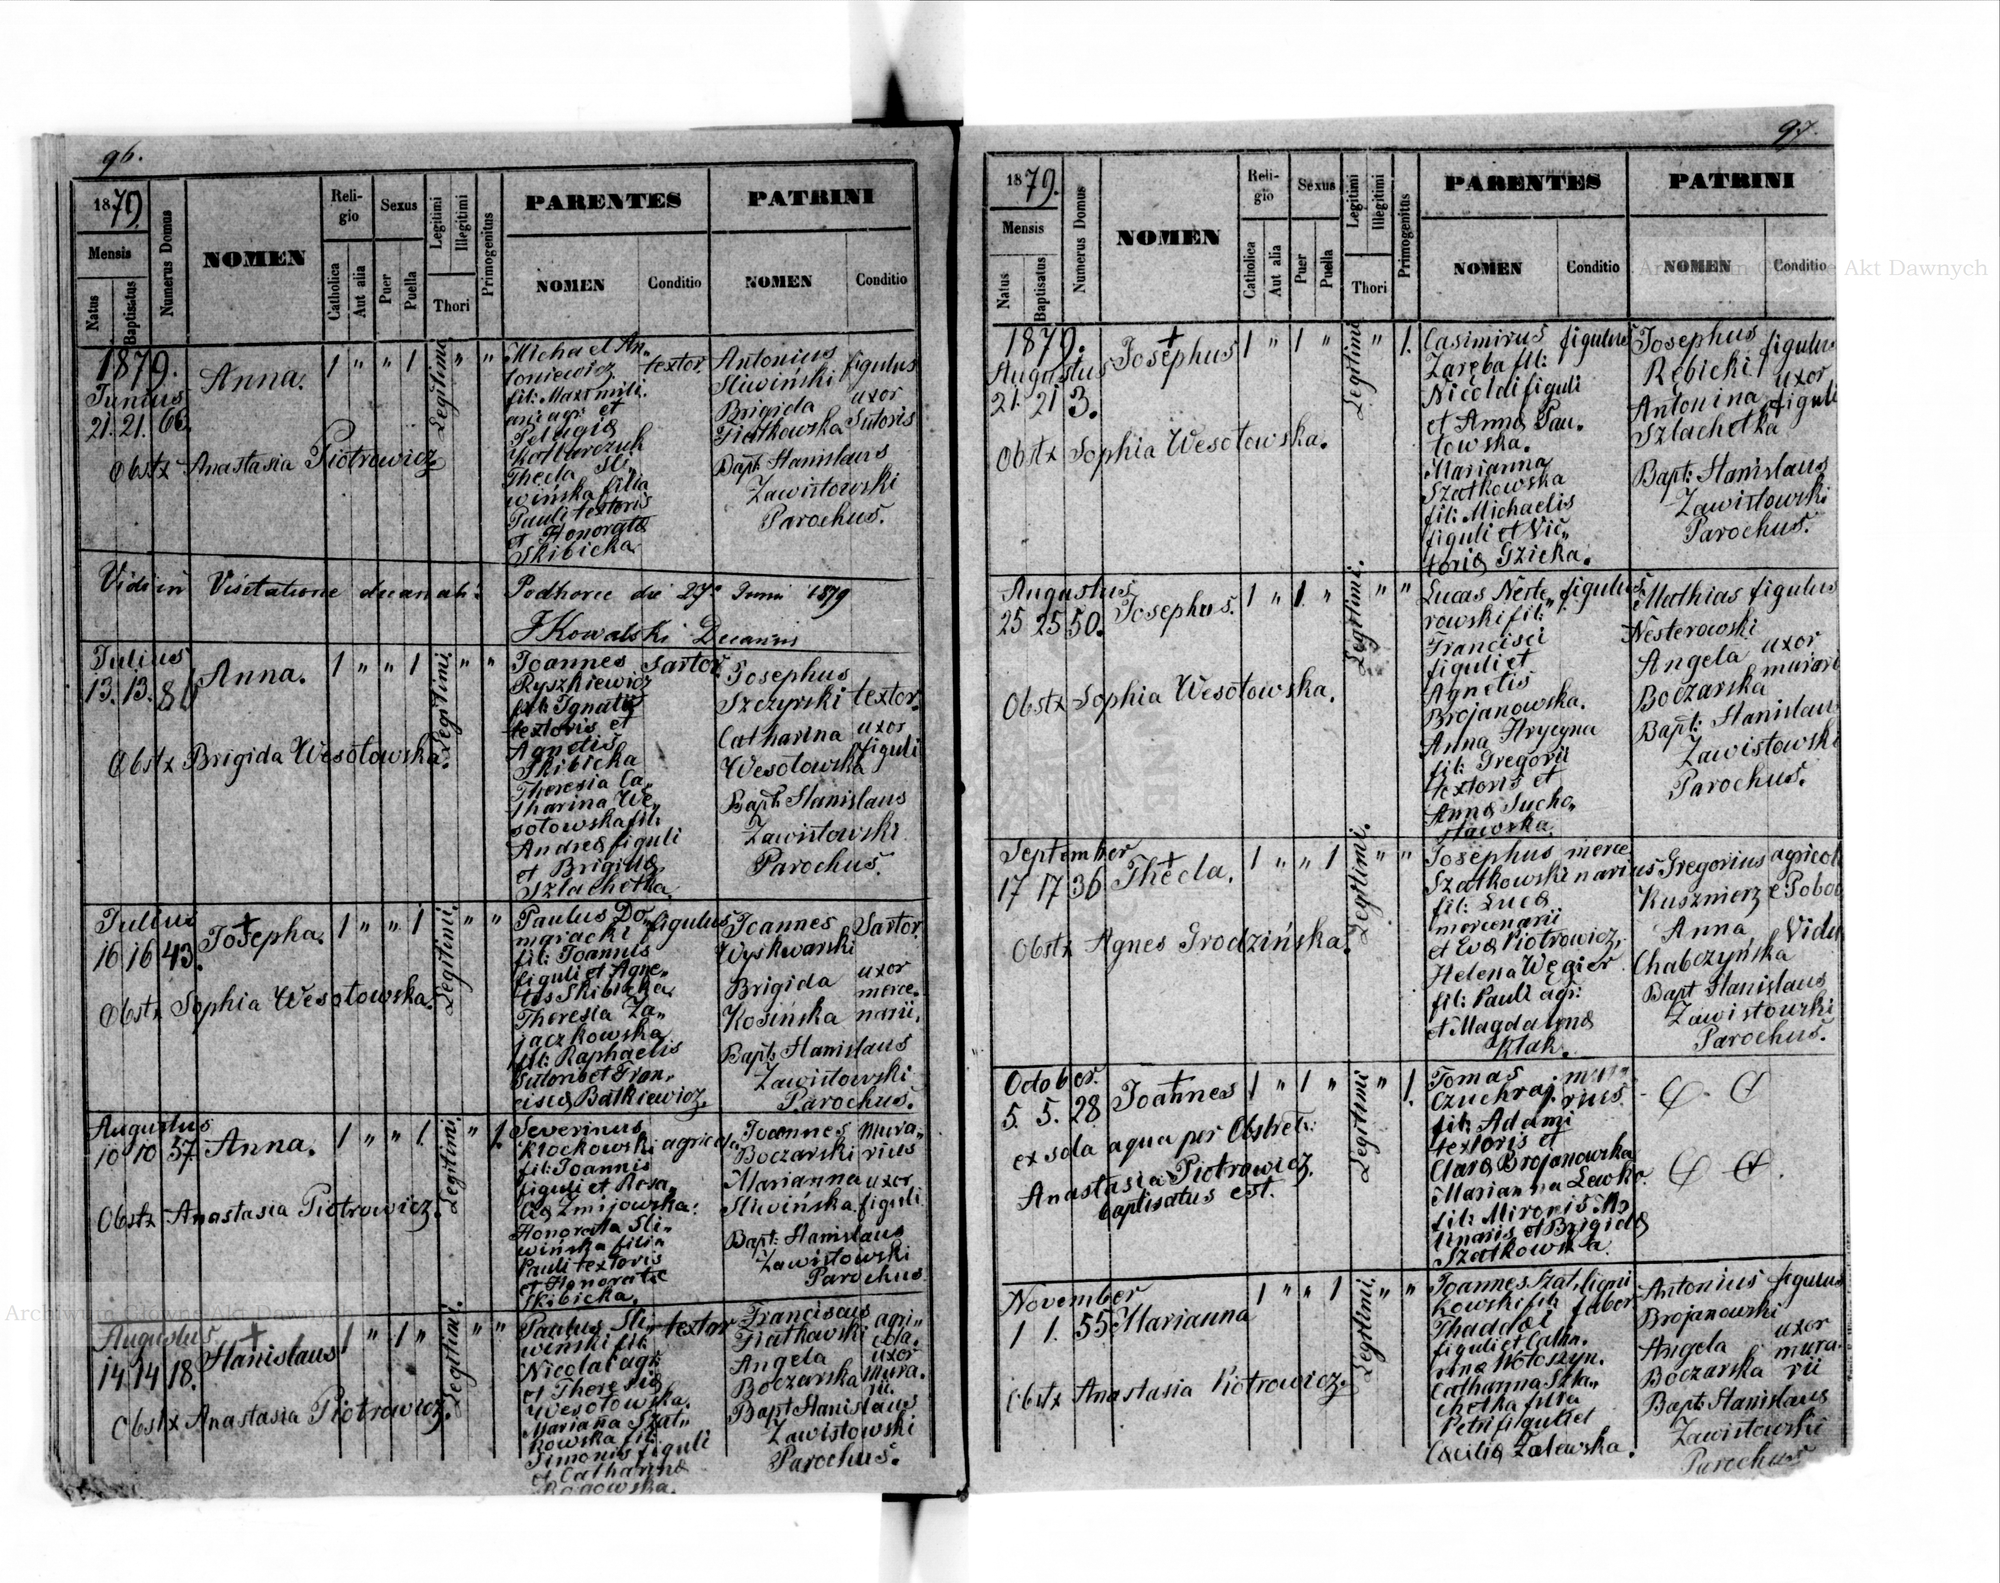 96.
1879.
Mensis
Natus
Baptisatus
Numerus Domus
NOMEN
Reli-
gio
Catholica
Aut alia
Sexus
Puer
Puella
Legitimi
Illegitimi
Thori
Primogenitus
PARENTES
NOMEN
Conditio
PATRINI
NOMEN
Conditio
1879.
Junius
21. 21. 66.
Anna.
1 " " 1 Legitimi " "
Obstx Anastasia Piotrowicz
Michael An„
toniewicz textor.
fil: Maximili.
ani agr: et
Pelagiæ
Thecla Sli„
wińska filia
Pauli textoris
et Honoratæ
Skibicka.
Antonius figulus
Sliwiński
Brigida uxor
Fiatkowska Sutoris
Bapt: Stanislaus
Zawistowski
Parochus.
Vidi in Visitatione decanali: Podhorce die 27 Junii 1879
J Kowalski Decanus
Julius
13. 13. 86
Anna.
1 " " 1 Legitimi. " "
Obstx Brigida Wesołowska.
Joannes Sartor.
Ryszkiewicz
fil: Ignatii
textoris et
Agnetis
Skibicka
Theresia Ca„
tharina We„
sołowska fil:
Andreæ figuli
et Brigidæ
Szlachetka.
Josephus
Szczyrski textor.
Catharina uxor
Wesołowska figuli
Bapt: Stanislaus
Zawistowski
Parochus.
Julius
16 16 43.
Josepha.
1 " " 1 Legitimi. " "
Obstx Sophia Wesołowska.
Paulus Do„ figulus
maracki
fil: Joannis
figuli et Agne„
tis Skibicka
Theresia Za„
jączkowska
fil: Raphaelis
Sutoris et Fran„
ciscæ Batkiewicz.
Joannes Sartor.
Wyskwarski
Brigida uxor
Kosińska merce„
narii.
Bapt: Stanislaus
Zawistowski
Parochus.
Augustus
10 10 57.
Anna.
1 " " 1. Legitimi. " 1.
Obstx Anastasia Piotrowicz.
Severinus
Kłockowski agricola
fil: Joannis
figuli et Rosa„
liæ Żmijowska:
Honorata Sli„
wińska filia
Pauli textoris
et Honoratæ
Skibicka.
Joannes mura„
Boczarski rius
Marianna uxor
Sliwińska figuli
Bapt: Stanislaus
Zawistowski
Parochus
Augustus
14 14 18.
Stanislaus
1 " 1 " Legitimi. " "
Obstx Anastasia Piotrowicz.
Paulus Sli„ textor
wiński fil:
Nicolai agr:
et Theresiæ
Wesołowska.
Mariana Szat„
kowska fil:
Simonis figuli
et Catharinæ
Rogowska.
Franciscus agri„
Fiatkowski cola.
Angela uxor
Boczarska mura.
rii.
Bapt: Stanislaus
Zawistowski
Parochus.
97.
1879.
Mensis
Natus
Baptisatus
Numerus Domus
NOMEN
Reli-
gio
Catholica
Aut alia
Sexus
Puer
Puella
Legitimi
Illegitimi
Thori
Primogenitus
PARENTES
NOMEN
Conditio
PATRINI
NOMEN
Conditio
1879.
Augustus
21. 21 3.
Josephus
1 " 1 " Legitimi " 1.
Obstx Sophia Wesołowska.
Casimirus figulus
Zaręba fil:
Nicolai figuli
et Annæ Pau„
łowska.
Marianna
Szatkowska
fil: Michaelis
figuli et Vic„
toriæ Gzicka.
Josephus figulus
Rębicki
Antonina uxor
Szlachetka figuli
Bapt: Stanislaus
Zawistowski
Parochus.
Augustus
25 25 50.
Josephus.
1 " 1. " Legitimi. " "
Obstx Sophia Wesołowska.
Lucas Neste„ figulus.
rowski fil:
Francisci
figuli et
Agnetis
Brojanowska.
Anna Hrycyna
fil: Gregorii
textoris et
Annæ Sucho„
sławska
Mathias figulus
Nesterowski
Angela uxor
Boczarska murarii
Bapt: Stanislaus
Zawistowski
Parochus.
September
17 17 36
Thecla.
1 " " 1 Legitimi. " "
Obstx Agnes Grodzińska.
Josephus merce
Szatkowski narius
fil: Lucæ
mercenarii
et Evæ Piotrowicz.
Helena Węgier
fil: Pauli agr:
et Magdalenæ
Kłak.
Gregorius agricol
Kuszmierz
Anna Vidu
Chabczyńska
Bapt Stanislaus
Zawistowski
Parochus.
October.
5. 5. 28
Joannes
1 " 1 " Legitimi " 1.
ex sola aqua per Obstetr:
Anastasia Piotrowicz
baptisatus est.
Tomas
Czuchraj.
fil: Adami
textoris et
Claræ Brojanowska
Marianna Lewko.
fil: Mironis Mo
linaris et Brigidæ
Szatkowska
November
1 1. 55
Marianna
1 " " 1 Legitimi. " "
Obstx Anastasia Piotrowicz.
Joannes Szat„ ligni
kowski fil: faber.
Thaddæi
figuli et Catha„
rinæ Wołoszyn.
Catharina Szla„
chetka filia
Petri figuli et
Cæciliæ Zalewska.
Antonius figulus
Brojanowski
Angela uxor
Boczarska mura„
rii
Bapt: Stanislaus
Zawistowski
Parochus
Archiwum Główne Akt Dawnych
Archiwum Główne Akt Dawnych